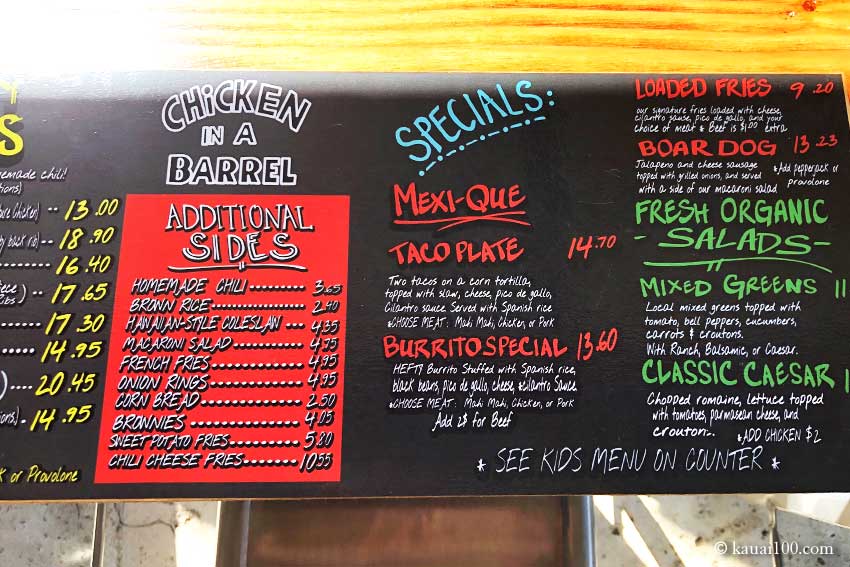 S
emade chili!
ions)
13.00
18.90
16.40
17.65
17.30
14.95
20.45
14.95
k or Provolone
CHiCKEN
IN A
BARREL
ADDITIONAL
SIDES
HOMEMADE CHILI 3.65
BROWN RICE 2.40
HAWAIIAN-STYLE COLESLAW 4.35
MACARONI SALAD 4.75
FRENCH FRIES 4.95
ONION RINGS 4.95
CORN BREAD 2.50
BROWNIES 4.05
SWEET POTATO FRIES 5.80
CHILI CHEESE FRIES 10.55
SPECIALS:
MEXI-QUE
TACO PLATE 14.70
Two tacos on a corn tortilla,
topped with slaw, cheese, pico de gallo,
Cilantro sauce. Served with Spanish rice
*CHOOSE MEAT: Mahi Mahi, Chicken, or Pork
BURRITO SPECIAL 13.60
HEFTY Burrito Stuffed with Spanish rice,
black beans, pico de gallo, cheese, & cilantro Sauce.
*CHOOSE MEAT: Mahi Mahi, Chicken, or Pork
Add 2$ for Beef
* SEE KIDS MENU ON COUNTER *
LOADED FRIES 9.20
our signature fries loaded with cheese,
cilantro sauce, pico de gallo, and your
choice of meat * Beef is $1.00 extra
BOAR DOG 13.23
Jalapeno and cheese sausage
topped with grilled onions, and served
with a side of our macaroni salad
*Add pepperjack or
provolone
FRESH ORGANIC
- SALADS -
MIXED GREENS 11
Local mixed greens topped with
tomato, bell peppers, cucumbers,
carrots & croutons.
With Ranch, Balsamic, or Caesar.
CLASSIC CAESAR 1
Chopped romaine, lettuce topped
with tomatoes, parmasean cheese, and
crouton..
*ADD CHICKEN $2
© kauai100.com